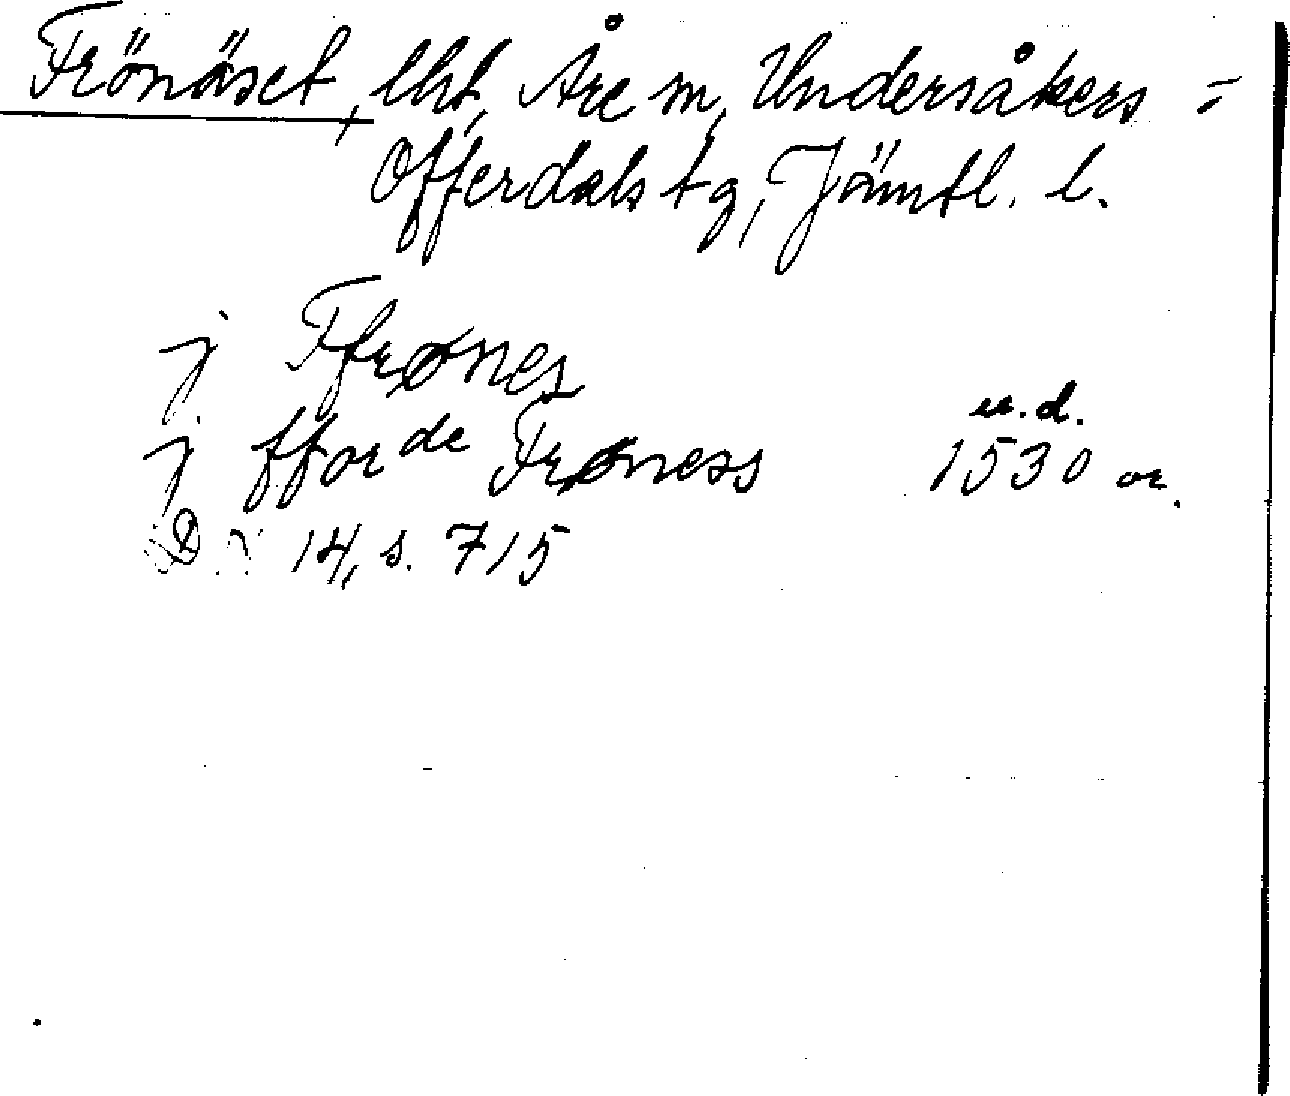 Frönäset, Åre sn, Undersåkers =
Offerdals tg, Jämtl. l.
j Ffrønes
j fforde Frøness
u.d.
1530 or.
D N 14, s. 715